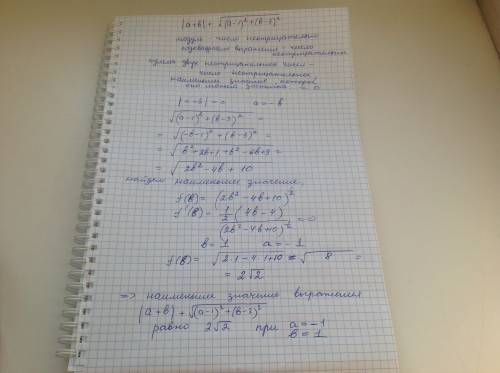 |a+b| + √(a-1)²+(b-3)²
модуль - число неотрицательное
подкоренное выражение - число
неотрицательное
сумма двух неотрицательных чисел -
число неотрицательное
наименьшее значение, которое
оно может = 0
|a+b| = 0 a = -b
√(a-1)²+(b-3)² =
= √(-b-1)²+(b-3)² =
= √b²+2b+1+b²-6b+9 =
= √2b²-4b+10
найдем наименьшее значение.
f(b) = (2b²-4b+10)^½
f'(b) = ½(4b-4)/(2b²-4b+10)^½ = 0
b = 1 a = -1
f(b) = √2·1-4·1+10 = √8 =
= 2√2
=> наименьшее значение выражения
|a+b| + √(a-1)²+(b-3)²
равно 2√2 при a=-1
b=1